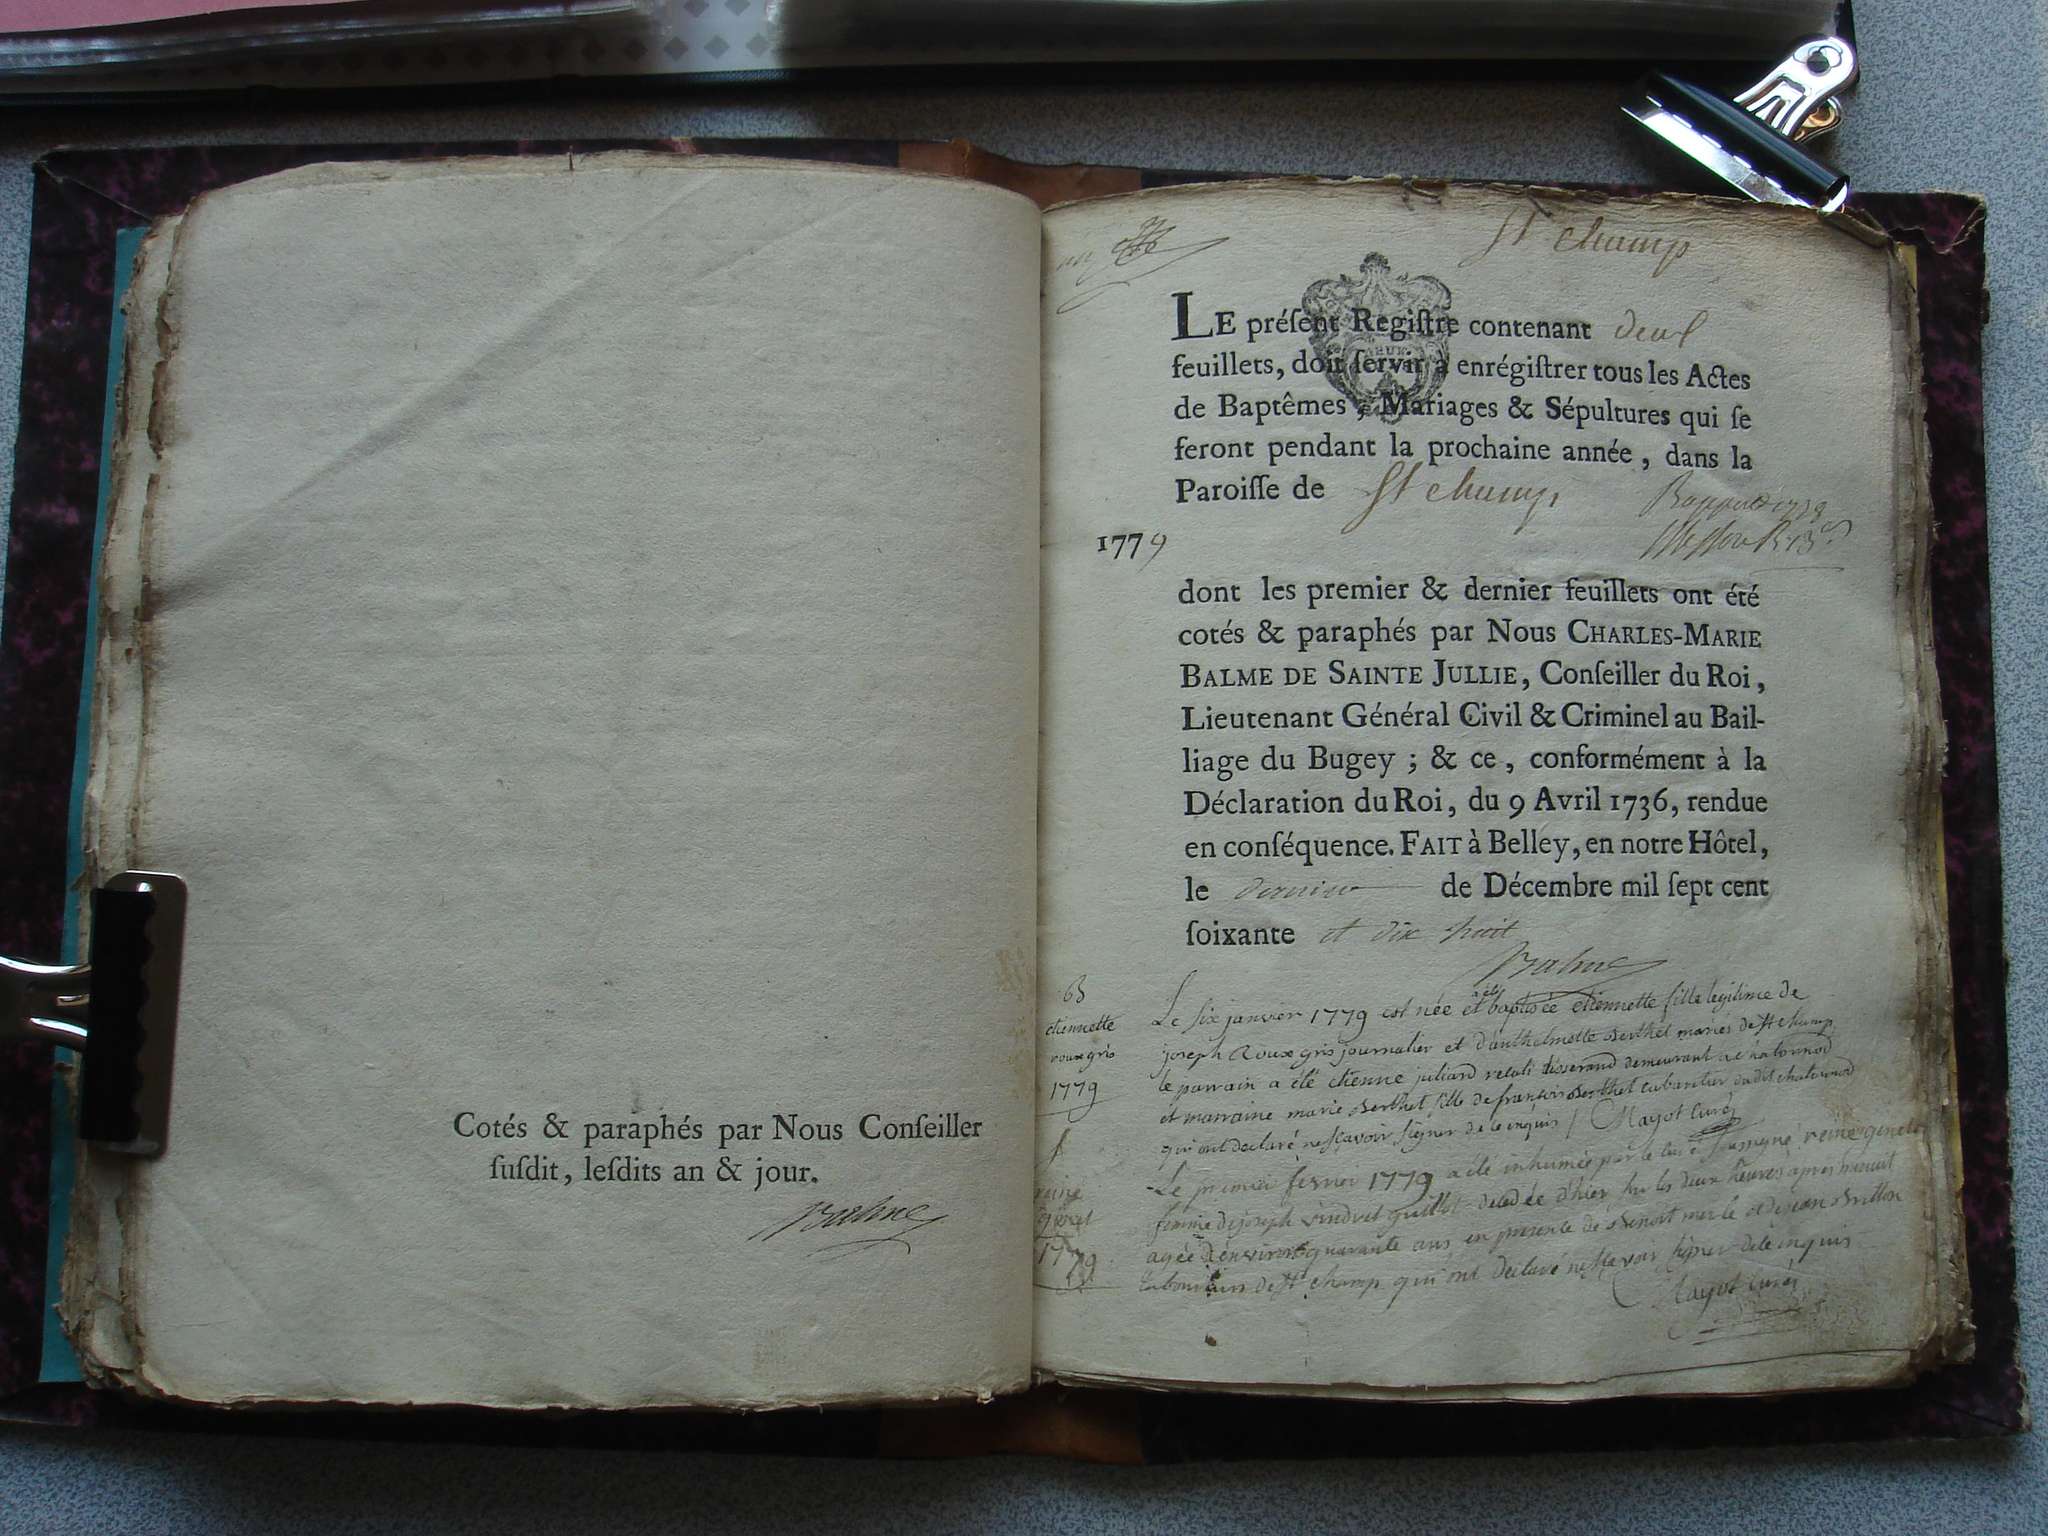 Cotés & paraphés par Nous Conſeiller
ſuſdit, leſdits an & jour.
Balme
St champ
LE préſent Regiſtre contenant deux
feuillets, doit ſervir à enrégiſtrer tous les Actes
de Baptêmes, Mariages & Sépultures qui ſe
feront pendant la prochaine année, dans la
Paroiſſe de St champ
1779
dont les premier & dernier feuillets ont été
cotés & paraphés par Nous CHARLES-MARIE
BALME DE SAINTE JULLIE, Conſeiller du Roi,
Lieutenant Général Civil & Criminel au Bail-
liage du Bugey ; & ce, conformément à la
Déclaration du Roi, du 9 Avril 1736, rendue
en conſéquence. FAIT à Belley, en notre Hôtel,
le dernier de Décembre mil ſept cent
ſoixante et dix huit
Balme
B
etiennette
roux gris
1779
Le six janvier 1779 est née et a été baptisée etiennette fille legitime de
joseph Roux gris journalier et d'anthelmette Berthet mariés de St champ
le parrain a été etienne juliard tisserand demeurant a chatonnod
et marraine marie Berthet fille de francois Berthet cabaretier dudit chatonnod
qui ont declaré ne sçavoir signer de ce enquis / Mayot curé
S
reine
genet
1779
Le premier fevrier 1779 a été inhumée par le curé soussigné reine genet
femme de joseph vindret guillot decedée d'hier sur les deux heures apres minuit
agée d'environ quarante ans en presence de Benoit merle et de jean Britton
laboureurs de St champ qui ont declaré ne sçavoir signer de ce enquis
Mayot curé